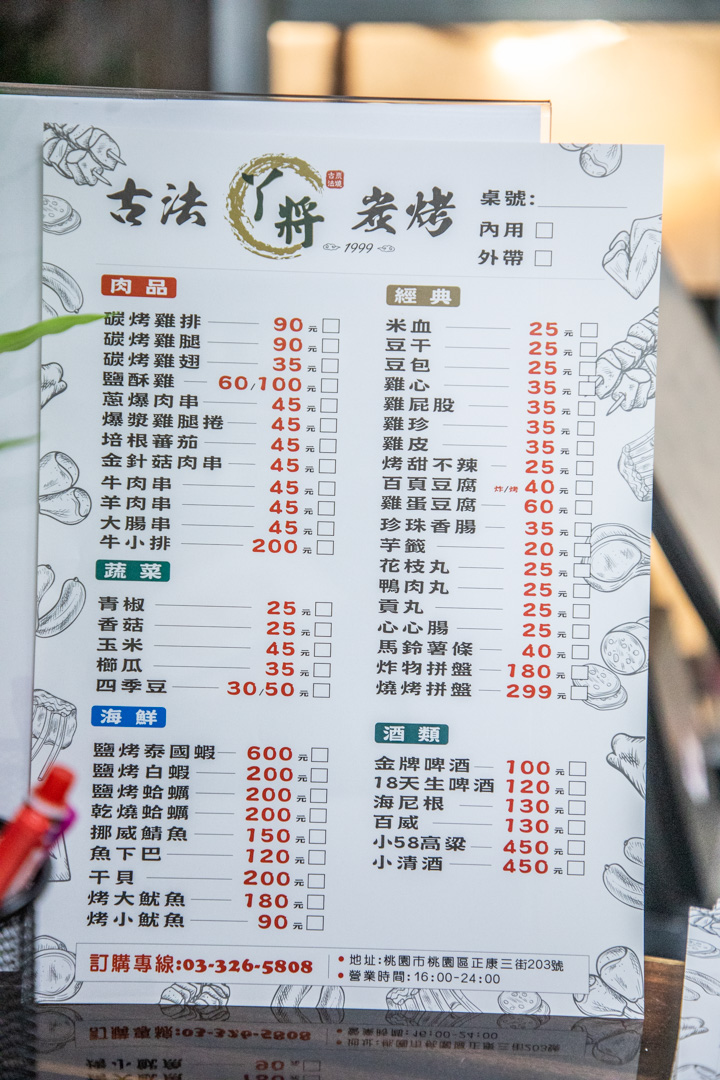 古法 丫將 炭烤
古法炭燒
1999
桌號:
內用
外帶
肉品
碳烤雞排 90元
碳烤雞腿 90元
碳烤雞翅 35元
鹽酥雞 60/100元
蔥爆肉串 45元
爆漿雞腿捲 45元
培根蕃茄 45元
金針菇肉串 45元
牛肉串 45元
羊肉串 45元
大腸串 45元
牛小排 200元
蔬菜
青椒 25元
香菇 25元
玉米 45元
櫛瓜 35元
四季豆 30/50元
海鮮
鹽烤泰國蝦 600元
鹽烤白蝦 200元
鹽烤蛤蠣 200元
乾燒蛤蠣 200元
挪威鯖魚 150元
魚下巴 120元
干貝 200元
烤大魷魚 180元
烤小魷魚 90元
經典
米血 25元
豆干 25元
豆包 25元
雞心 35元
雞屁股 35元
雞珍 35元
雞皮 35元
烤甜不辣 25元
百頁豆腐 炸/烤 40元
雞蛋豆腐 60元
珍珠香腸 35元
芋籤 20元
花枝丸 25元
鴨肉丸 25元
貢丸 25元
心心腸 25元
馬鈴薯條 40元
炸物拼盤 180元
燒烤拼盤 299元
酒類
金牌啤酒 100元
18天生啤酒 120元
海尼根 130元
百威 130元
小58高粱 450元
小清酒 450元
訂購專線:03-326-5808
•地址:桃園市桃園區正康三街203號
•營業時間:16:00-24:00